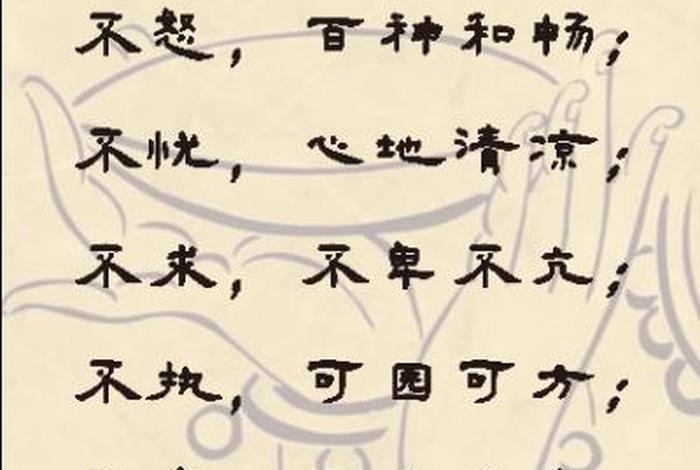 不怒，百神和畅；
不恍，心地清凉；
不求，不卑不亢；
不执，可圆可方；